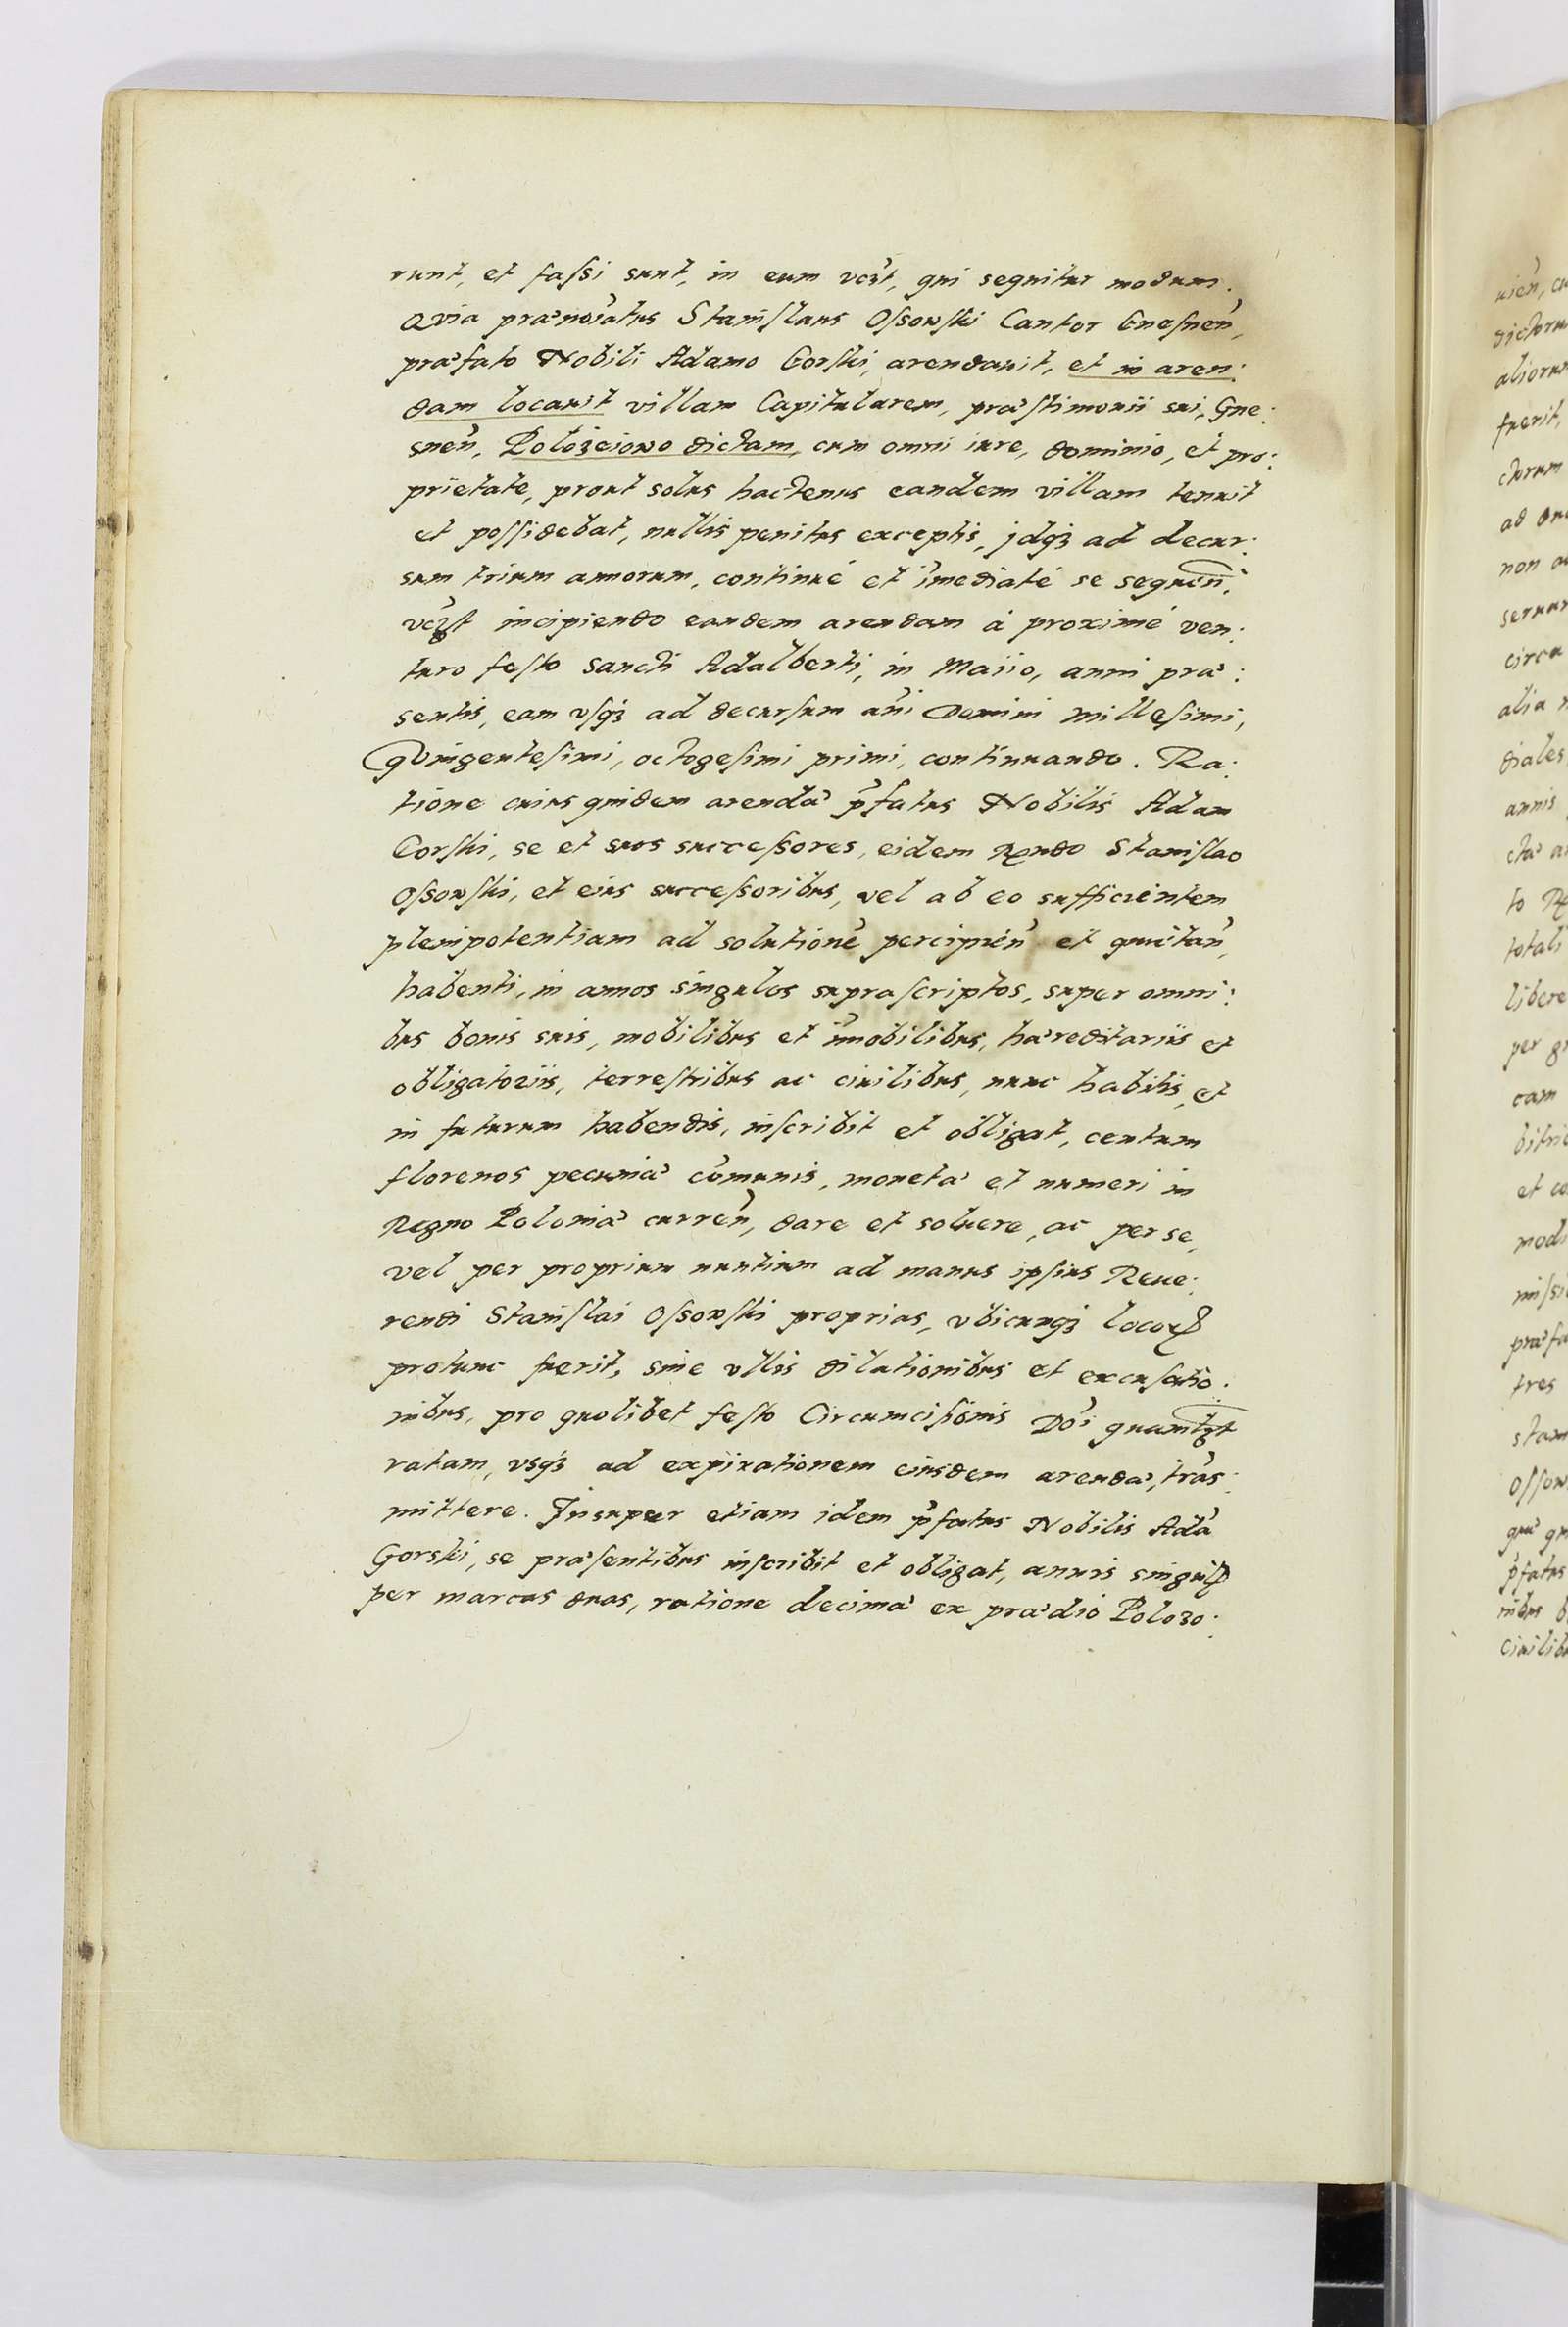 runt, et faſsi sunt, in eum vc3t, qui sequitur modum.
Qvia prænoi᷃atus Staniſlaus Oſsowſki Cantor Gneſnen̄,
præfato Nobili Adamo Gorſki, arendauit, et in aren:
dam locauit villam Capitularem, præſtimonii sui, Gne:
snen̄, Poloʒeiowo dictam, cum omni iure, dominio, et pro:
prietate, prout solus hactenus eandem villam tenuit
et poſſidebat, nullis penitus exceptis, jdqʒ ad decur:
sum trium annorum, continué et im̄ediaté se sequen̄.
vcʒt incipiendo eandem arendam á proximé ven:
turo feſto Sancti Adalberti, in Maiio, anni præ:
sentis, eam vſqʒ ad decurſum an̄i Domini Milleſimi,
Qvingenteſimi, octogeſimi primi, continuando. Ra:
tione cuius quidem arendæ p̄fatus Nobilis Adam
Gorſki, se et suos succeſsores, eidem Rndo Staniſlao
Oſsowſki, et eius succeſsoribus, vel ab eo sufficientem
plenipotentiam ad solutionē percipien̄ et quictan̄,
habenti, in annos singulos supraſcriptos, super omni:
bus bonis suis, mobilibus et im̄obilibus, hæreditariis et
obligatoriis, terreſtribus ac ciuilibus, nunc habitis, et
in futurum habendis, inſcribit et obligat, centum
florenos pecuniæ com̄unis, monetæ et numeri in
Regno Poloniæ curren̄, dare et soluere, ac per se,
vel per proprium nuntium ad manus ipſius Reue:
rendi Staniſlai Oſsowſki proprias, vbicunqʒ locoꝝ
protunc fuerit, sine vllis dilationibus et excuſatio:
nibus, pro quolibet feſto Circumciſionis Do᷃i quamlʒt
ratam, vsqʒ ad expirationem eiusdem arendæ, trās:
mittere. Insuper etiam idem p̄fatus Nobilis Adā
Gorski, se præſentibus inſcribit et obligat, annis singulꝭ
per marcas duas, ratione decimæ ex prædio Poloʒo: